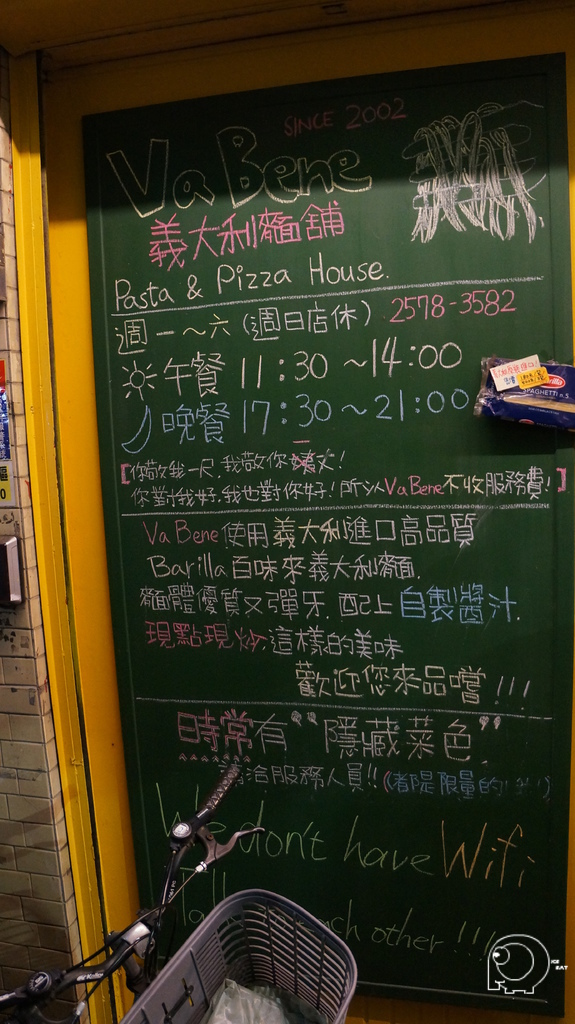 SINCE 2002
Va Bene
義大利麵舖
Pasta & Pizza House.
週一～六(週日店休) 2578-3582
午餐 11:30～14:00
晚餐 17:30～21:00
Barilla
SPAGHETTI n.5
【你敬我一尺,我敬你一丈!
你對我好,我也對你好!所以VaBene不收服務費!】
Va Bene使用義大利進口高品質
Barilla百味來義大利麵.
麵體優質又彈牙.配上自製醬汁.
現點現炒.這樣的美味
歡迎您來品嚐!!!
時常有"隱藏菜色".
洽服務人員!!(都是限量的!!!)
We don't have Wifi
Talk each other!!!
ICE
EAT